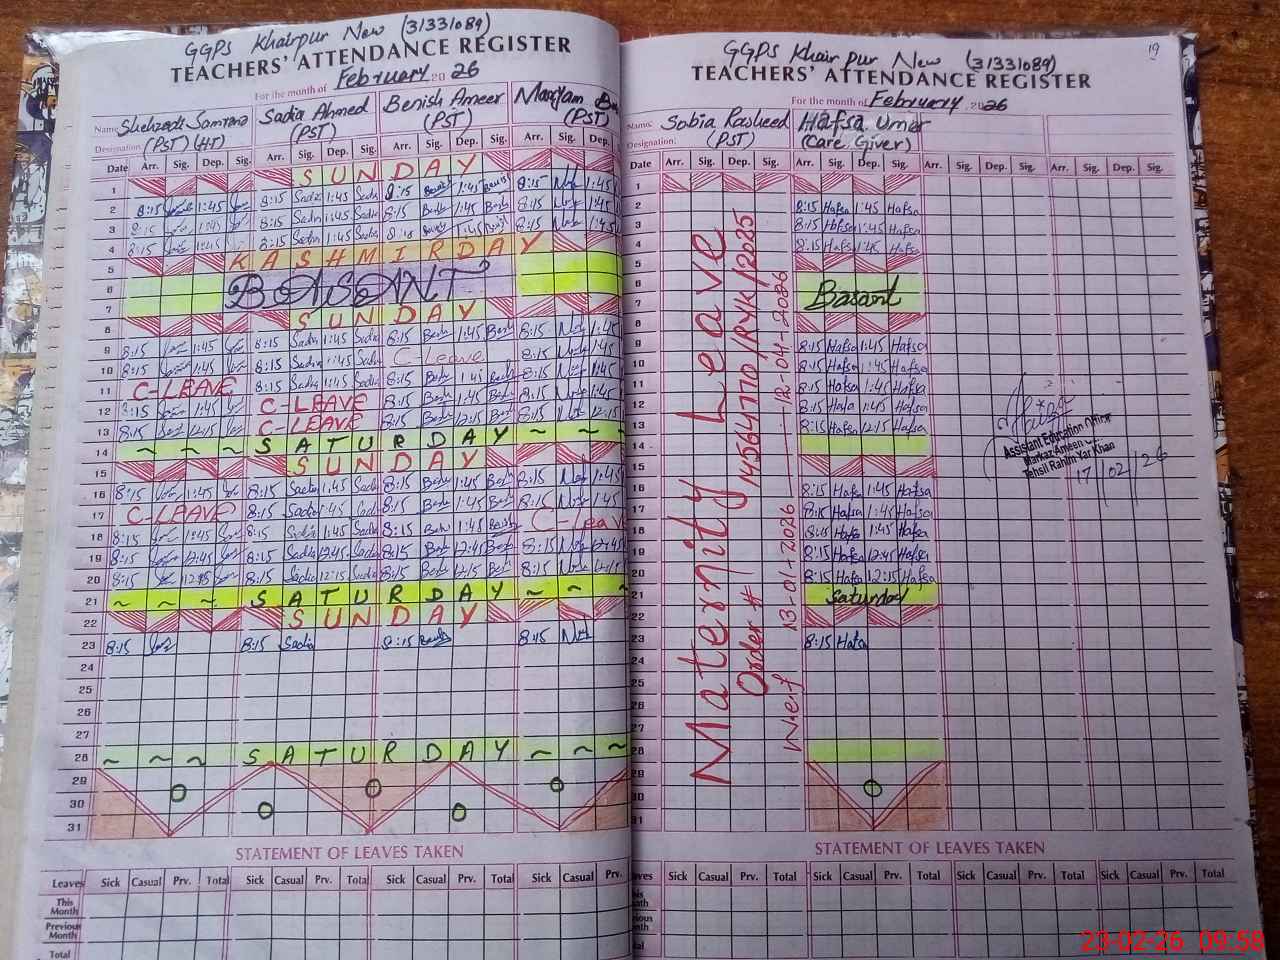 GGPS Khairpur New (31331089)
TEACHERS' ATTENDANCE REGISTER
For the month of February 20 26
Name Shehzadi Sadia Ahmed Benish Ameer Maryam
Designation (PST) (HT) (PST) (PST) (PST)
Date Arr. Sig. Dep. Sig. Arr. Sig. Dep. Sig. Arr. Sig. Dep. Sig. Arr. Sig. Dep.
1 SUNDAY
2 8:15 1:45 8:15 Sadia 1:45 Sadia 8:15 1:45 8:15 1:45
3 8:15 1:45 8:15 Sadia 1:45 Sadia 8:15 1:45 8:15 1:45
4 8:15 1:45 8:15 Sadia 1:45 Sadia 8:15 1:45 8:15 1:45
5 KASHMIR DAY
6 BASANT
7
8 SUNDAY
9 8:15 1:45 8:15 Sadia 1:45 Sadia 8:15 1:45 8:15 1:45
10 8:15 1:45 8:15 Sadia 1:45 Sadia C-Leave 8:15 1:45
11 C-LEAVE 8:15 Sadia 1:45 Sadia 8:15 1:45 8:15 1:45
12 8:15 1:45 C-LEAVE 8:15 1:45 8:15 1:45
13 8:15 12:15 C-LEAVE 8:15 12:15 8:15 12:15
14 ~ ~ ~ SATURDAY ~ ~ ~
15 SUNDAY
16 8:15 1:45 8:15 Sadia 1:45 Sadia 8:15 1:45 8:15 1:45
17 C-LEAVE 8:15 Sadia 1:45 Sadia 8:15 1:45 8:15 1:45
18 8:15 1:45 8:15 Sadia 1:45 Sadia 8:15 1:45 C-Leave
19 8:15 12:45 8:15 Sadia 12:45 Sadia 8:15 12:45 8:15 12:45
20 8:15 8:15 Sadia 12:15 Sadia 8:15 12:15 8:15 12:15
21 ~ ~ ~ SATURDAY ~ ~ ~
22 SUNDAY
23 8:15 8:15 Sadia 8:15 8:45
24
25
26
27
28 ~ ~ ~ SATURDAY ~ ~ ~
29
30
31
STATEMENT OF LEAVES TAKEN
Leaves Sick Casual Prv. Total Sick Casual Prv. Total Sick Casual Prv. Total Sick Casual Prv.
This Month
Previous Month
Total
19
GGPS Khairpur New (31331089)
TEACHERS' ATTENDANCE REGISTER
For the month of February, 20 26
Name: Sobia Rasheed Hafsa Umer
Designation: (PST) (Care Giver)
Date Arr. Sig. Dep. Sig. Arr. Sig. Dep. Sig. Arr. Sig. Dep. Sig. Arr. Sig. Dep. Sig.
Maternity Leave
Order # 14564770/RYK/2025
W.e.f 13-01-2026 — 12-04-2026
1
2 8:15 Hafsa 1:45 Hafsa
3 8:15 Hafsa 1:45 Hafsa
4 8:15 Hafsa 1:45 Hafsa
5
6 Basant
7
8
9 8:15 Hafsa 1:45 Hafsa
10 8:15 Hafsa 1:45 Hafsa
11 8:15 Hafsa 1:45 Hafsa
12 8:15 Hafsa 1:45 Hafsa
13 8:15 Hafsa 12:15 Hafsa
14
15
16 8:15 Hafsa 1:45 Hafsa
17 8:15 Hafsa 1:45 Hafsa
18 8:15 Hafsa 1:45 Hafsa
19 8:15 Hafsa 12:45 Hafsa
20 8:15 Hafsa 12:15 Hafsa
21 Saturday
22
23 8:15 Hafsa
24
25
26
27
28
29
30
31
Assistant Education Officer
Markaz Ameen
Tehsil Rahim Yar Khan
17/02/26
STATEMENT OF LEAVES TAKEN
Leaves Sick Casual Prv. Total Sick Casual Prv. Total Sick Casual Prv. Total Sick Casual Prv. Total
This Month
Previous Month
Total
23-02-26 09:58